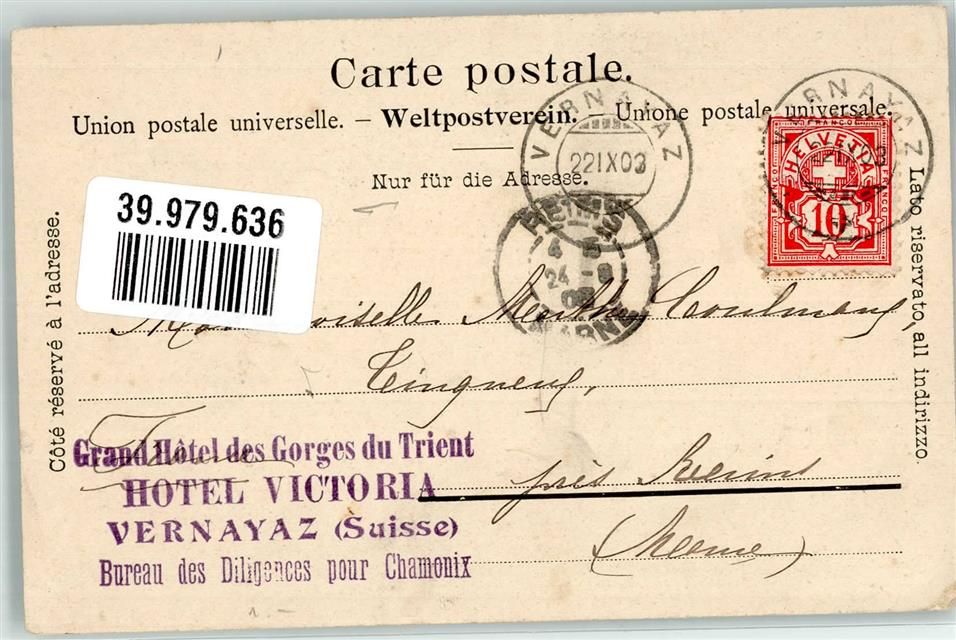 Carte postale.
Union postale universelle. – Weltpostverein. – Unione postale universale.
Nur für die Adresse.
Côté réservé à l'adresse.
Lato riservato, all indirizzo.
39.979.636
VERNAYAZ
22 IX 03
VERNAYAZ
FRANCO
HELVETIA
FRANCO
FRANCO
10
REIMS
24
MARNE
Marthe
Tinqueux,
France
près Reims
(Marne)
Grand Hôtel des Gorges du Trient
HOTEL VICTORIA
VERNAYAZ (Suisse)
Bureau des Diligences pour Chamonix